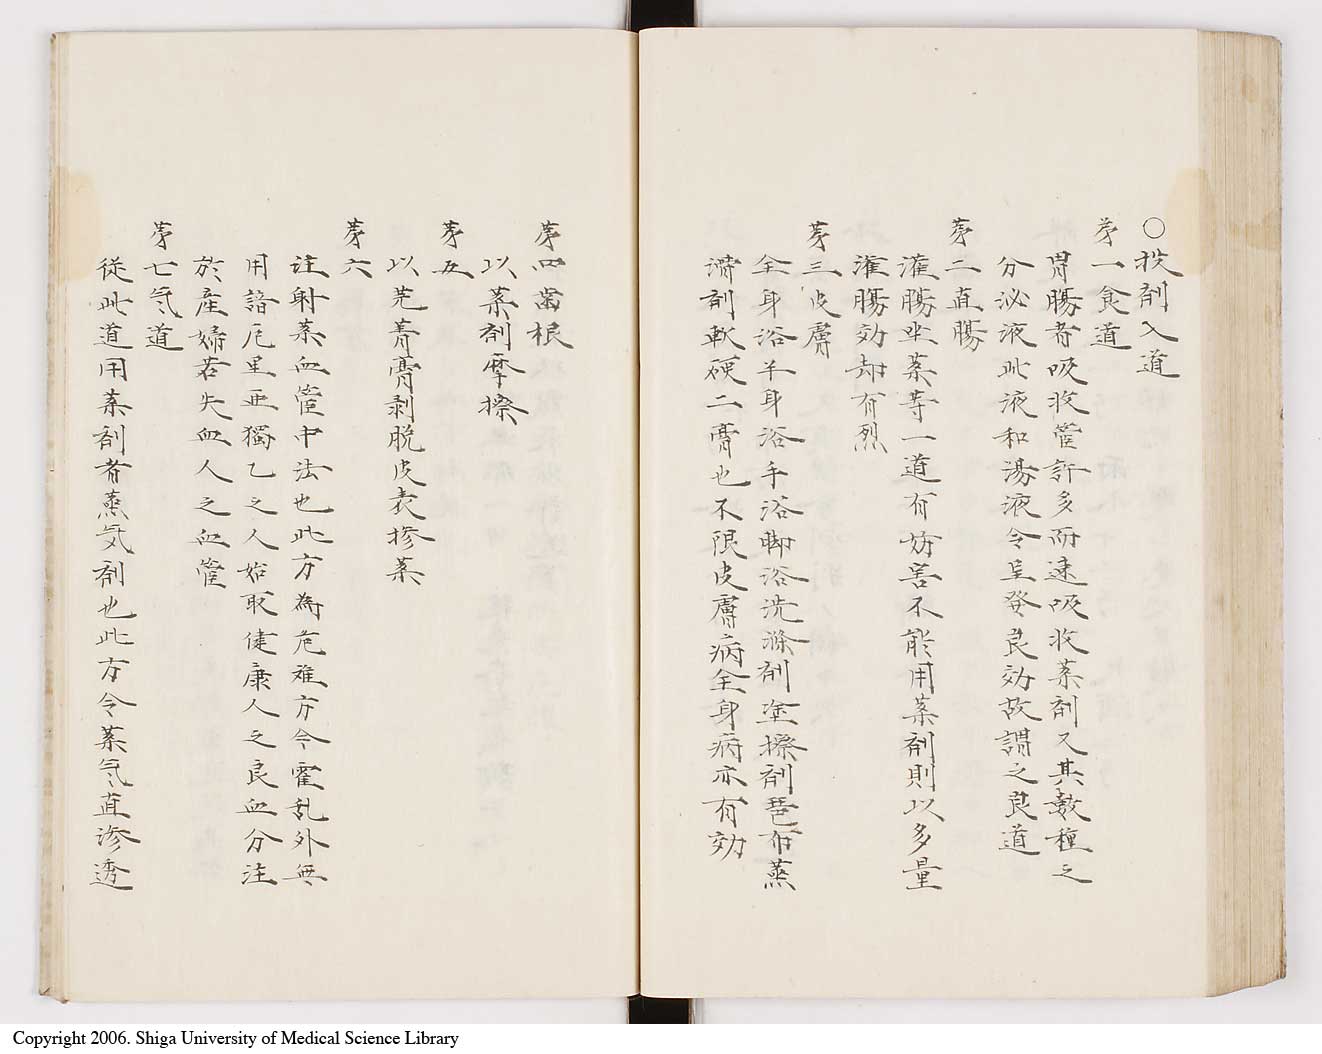 ○投剤入道
第一食道
胃腸者吸收管許多而速吸收薬剤又其数種之
分泌液此液和湯液令呈發良効故謂之良道
第二直腸
灌腸坐薬等一道有妨害不能用薬剤則以多量
灌腸効却有烈
第三皮膚
全身浴半身浴手浴脚浴洗滌剤塗擦剤琶布蒸
滯剤軟硬二膏也不限皮膚病全身病亦有効
第四歯根
以薬剤摩擦
第五
以芫菁膏剥脱皮表摻薬
第六
注射薬血管中法也此方為危難方今霍乱外無
用諳厄里亜獨乙之人始取健康人之良血分注
於産婦若失血人之血管
第七気道
従此道用薬剤者蒸気剤也此方令薬気直滲透
Copyright 2006. Shiga University of Medical Science Library